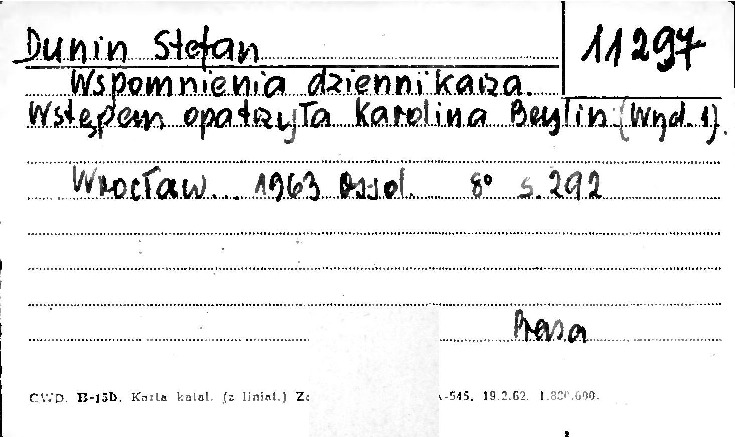 Dunin Stefan
11297
Wspomnienia dziennikarza.
Wstępem opatrzyła Karolina Beylin (Wyd. 1).
Wrocław... 1963 Ossol. 8° s. 292
Prasa
CWD. B-15b. Karta katal. (z liniat.) -545. 19.2.62. 1.820.000.